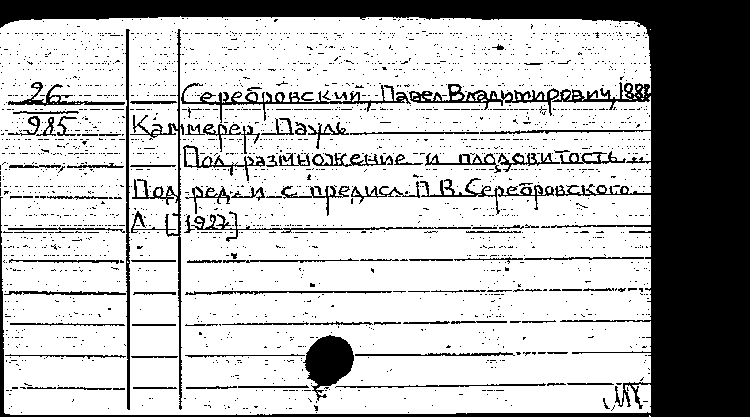 26
985
Серебровский, Павел Владимирович, 188
Каммерер, Пауль
Пол, размножение и плодовитость...
Под ред. и с предисл. П.В.Серебровского.
Л. [1927].